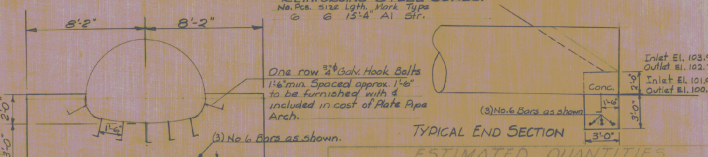 No. Pcs. Size Lgth. Mark Type
6 6 15'-4" A1 Str.
8'-2" 8'-2"
One row 3/4"ϕ Galv. Hook Bolts
1'-6" min. Spaced approx. 1'-6"
to be furnished with &
included in cost of Plate Pipe
Arch.
2'-0"
1'-6"
3'-0"
(3) No. 6 Bars as shown.
Conc.
2'-0"
Inlet El. 103.
Outlet El. 102.
Inlet El. 101.
Outlet El. 100.
(3) No. 6 Bars as shown
1'-6"
3'-0"
3'-0"
TYPICAL END SECTION
ESTIMATED QUANTITIES